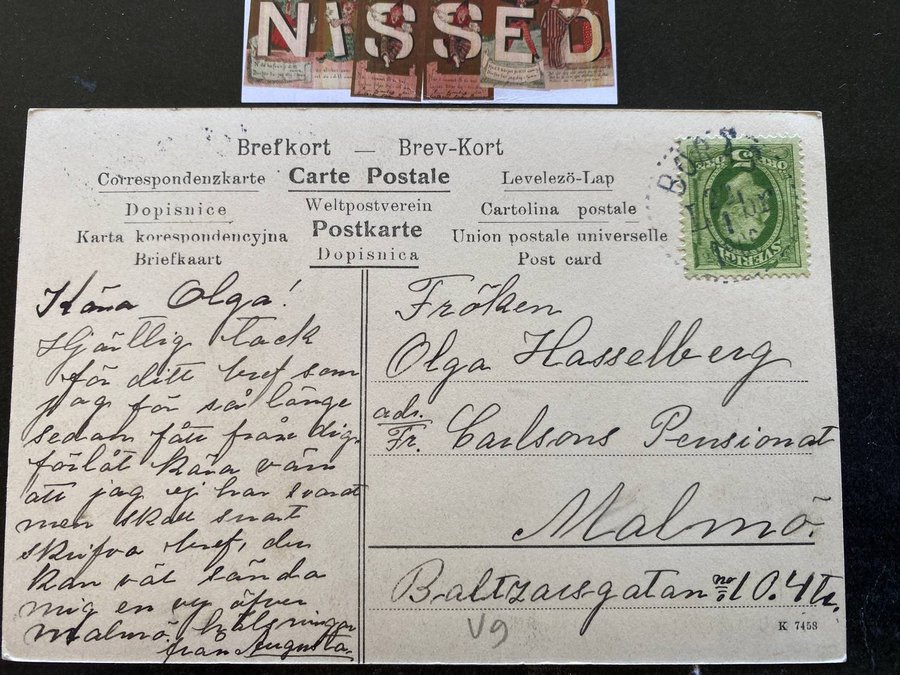 NISSED
Brefkort — Brev-Kort
Correspondenzkarte Carte Postale Levelezö-Lap
Dopisnice Weltpostverein Cartolina postale
Karta korespondencyjna Postkarte Union postale universelle
Briefkaart Dopisnica Post card
SVERIGE
5
Kära Olga!
Hjärtlig tack
för ditt bref som
jag för så länge
sedan fått från dig.
förlåt kära vän
att jag ej har svarat
men skall snart
skrifva bref, du
kan väl sända
mig en vy öfver
Malmö. hälsningar
från Augusta.
Fröken
Olga Hasselberg
adr.
Fr. Carlsons Pensionat
Malmö.
Baltzarsgatan no 10. 4 tr.
V9
K 7458